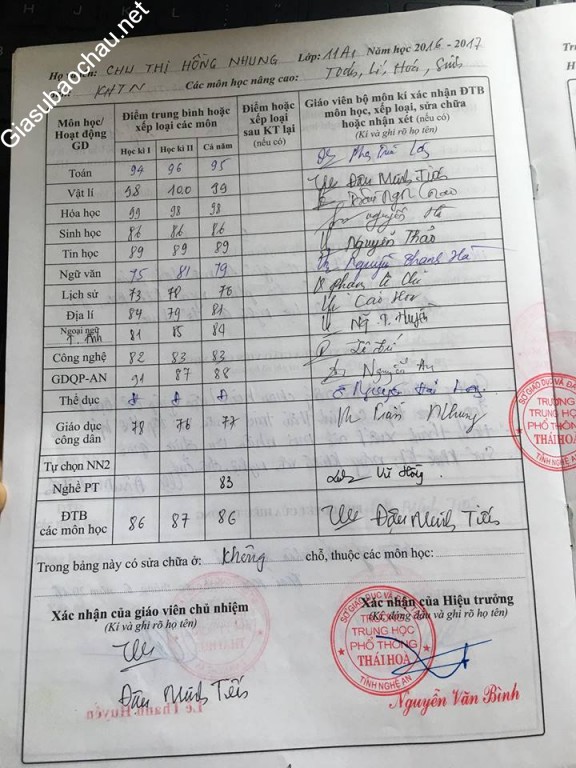 Giasubaochau.net
Họ và tên: CHU THỊ HỒNG NHUNG Lớp: 11A1 Năm học 2016 - 2017
KHTN Các môn học nâng cao: Toán, Lí, Hoá, Sinh
Môn học/ Hoạt động GD
Điểm trung bình hoặc xếp loại các môn
Học kì I Học kì II Cả năm
Điểm hoặc xếp loại sau KT lại (nếu có)
Giáo viên bộ môn kí xác nhận ĐTB môn học, xếp loại, sửa chữa hoặc nhận xét (nếu có)
(Kí và ghi rõ họ tên)
Toán 94 96 95
Vật lí 98 10.0 99 Đậu Minh Tiến
Hóa học 99 98 98
Sinh học 86 86 86 Nguyễn Hà
Tin học 89 89 89 Nguyễn Thảo
Ngữ văn 75 81 79 Nguyễn Thanh Hà
Lịch sử 73 78 76 Phan Lê Chi
Địa lí 84 79 81 Cao Hoa
Ngoại ngữ T. Anh 81 85 84
Công nghệ 82 83 83
GDQP-AN 91 87 88 Nguyễn An
Thể dục Đ Đ Đ
Giáo dục công dân 78 76 77 Trần Nhung
Tự chọn NN2
Nghề PT 83
ĐTB các môn học 86 87 86 Đậu Minh Tiến
Trong bảng này có sửa chữa ở: Không chỗ, thuộc các môn học:
Xác nhận của giáo viên chủ nhiệm
(Kí và ghi rõ họ tên)
Đậu Minh Tiến
Lê Thanh Huyền
Xác nhận của Hiệu trưởng
(Kí, đóng dấu và ghi rõ họ tên)
TRƯỜNG
TRUNG HỌC
PHỔ THÔNG
THÁI HOÀ
TỈNH NGHỆ AN
Nguyễn Văn Bình
SỞ GIÁO DỤC VÀ
TRƯỜNG
TRUNG HỌC
PHỔ THÔNG
THÁI HOÀ
TỈNH NGHỆ AN